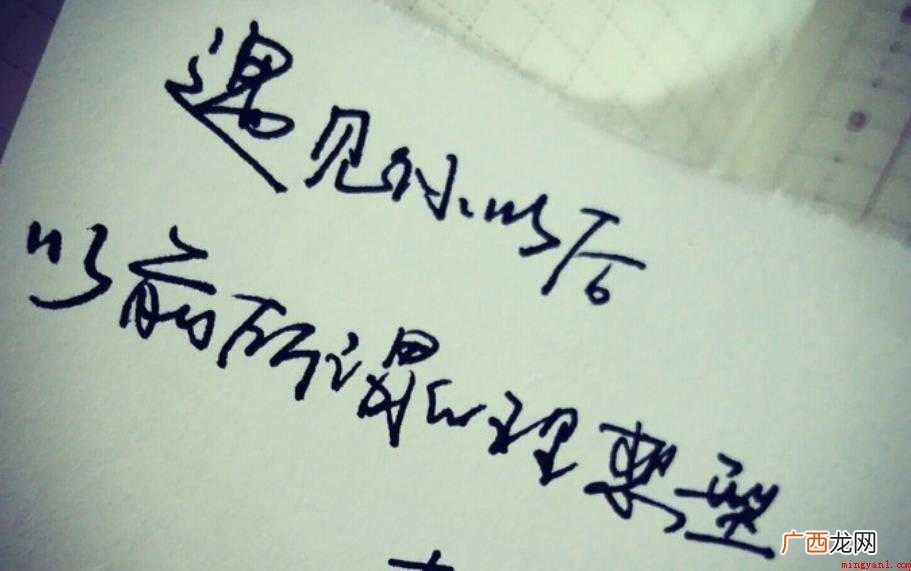 遇见你以后
以前所谓的理想型
广西龙网
mingyan1.com